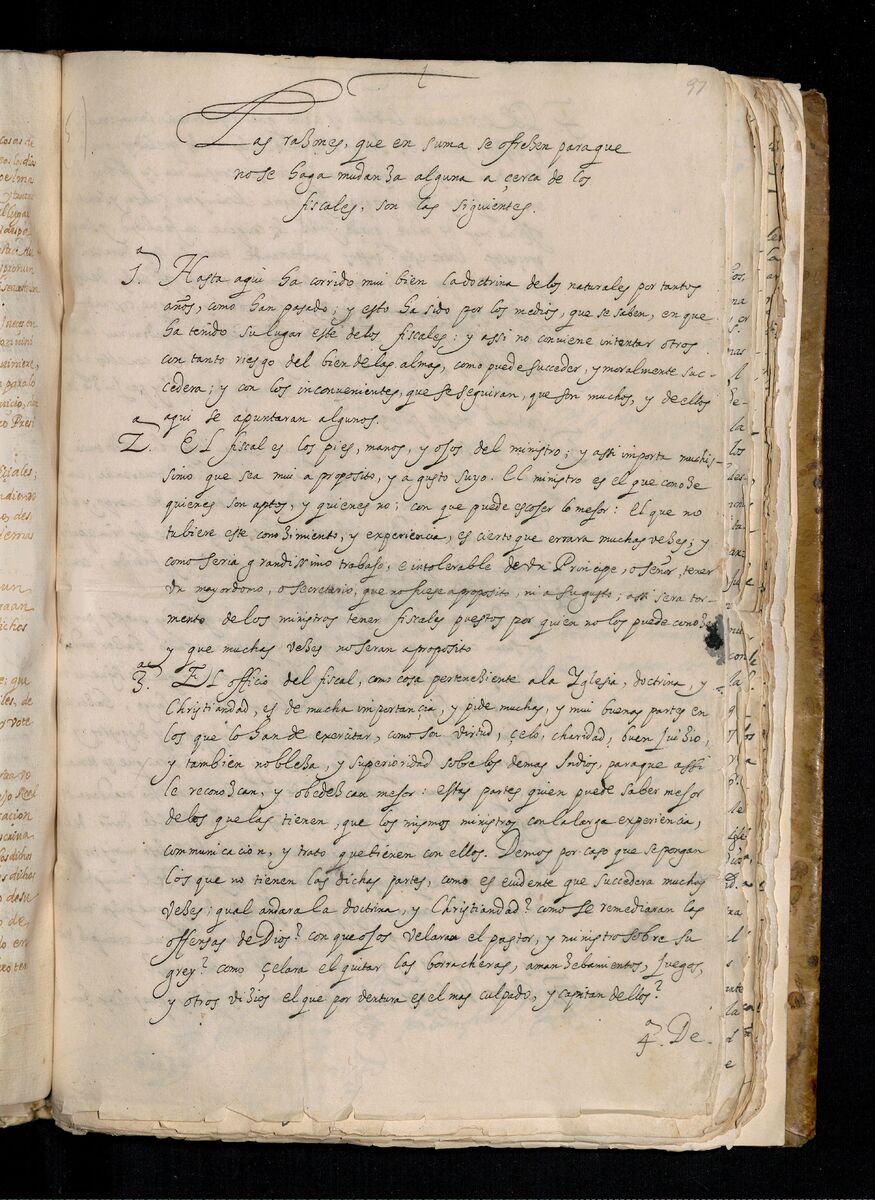 97
Las razones, que en suma se ofrezen para que
no se haga mudanza alguna a çerca de los
fiscales, son las siguientes.
1.a Hasta aqui ha corrido mui bien la doctrina de los naturales por tantos
años, como han pasado; y esto ha sido por los medios, que se saben, en que
ha tenido su lugar este de los fiscales: y assi no conviene intentar otros
con tanto riesgo del bien de las almas, como puede succeder, y moralmente suc-
cedera; y con los inconvenientes, que se seguiran, que son muchos, y de ellos
aqui se apuntaran algunos.
2.a El fiscal es los pies, manos, y ojos del ministro; y assi importa muchis-
simo que sea mui a proposito, y a gusto suyo. El ministro es el que conoze
quienes son aptos, y quienes no; con que puede escojer lo mejor: el que no
tubiere este conozimiento, y experiencia, es cierto que errara muchas vezes; y
como seria grandissimo trabajo, e intolerable de vn Principe, o señor, tener
vn mayordomo, o secretario, que no fuese a proposito, ni a su gusto; assi sera tor-
mento de los ministros tener fiscales puestos por quien no los puede conozer
y que muchas vezes no seran a proposito
3.a El officio del fiscal, como cosa perteneziente a la Yglesia, doctrina, y
Christiandad, es de mucha importançia, y pide muchas, y mui buenas partes en
los que lo han de exercitar, como son virtud, çelo, charidad, buen juizio,
y tambien nobleza, y superioridad sobre los demas Indios, para que assi
le reconozcan, y obedezcan mejor: estas partes quien puede saber mejor
de los que las tienen, que los mismos ministros con la larga experiencia,
communicacion, y trato que tienen con ellos. Demos por caso que se pongan
los que no tienen las dichas partes, como es euidente que succedera muchas
vezes; qual andara la doctrina, y Christiandad? como se remediaran las
offensas de Dios? con que ojos velara el pastor, y ministro sobre su
grey? como çelara el quitar las borracheras, amanzebamientos, juegos,
y otros vizios el que por ventura es el mas culpado, y capitan de ellos?
4.a De